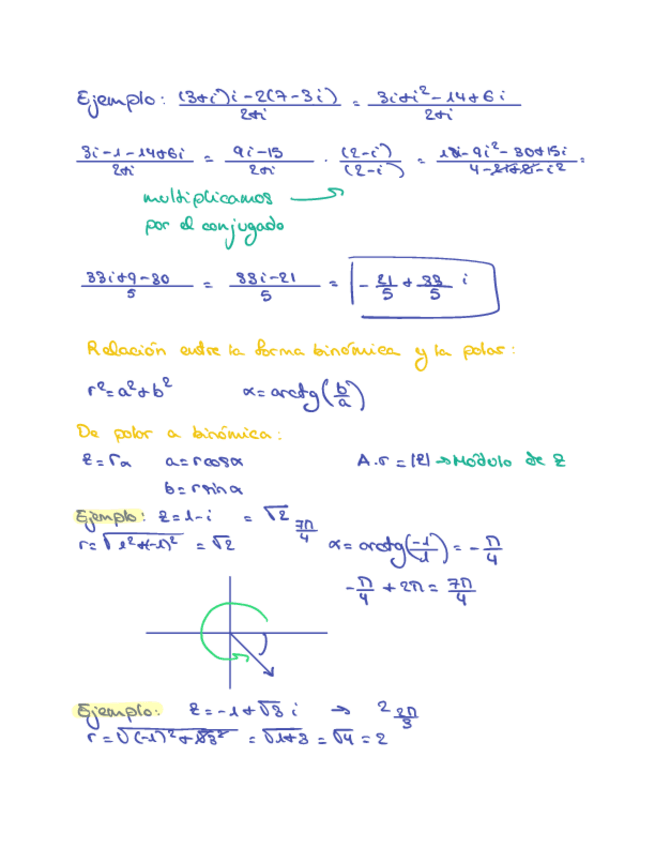 Ejemplo: ((3+i)i-2(7-3i))/(2+i) = (3i+i²-14+6i)/(2+i)
(3i-1-14+6i)/(2+i) = (9i-15)/(2+i) · (2-i)/(2-i) = (18i-9i²-30+15i)/(4-2i+2i-i²) =
multiplicamos
por el conjugado
(33i+9-30)/5 = (33i-21)/5 = -21/5 + 33/5 i
Relación entre la forma binómica y la polar:
r²=a²+b² α=arctg(b/a)
De polar a binómica:
z=rα a=rcosα A.r=|z|→Módulo de z
b=rsinα
Ejemplo: z=1-i = √2 7π/4
r=√1²+(-1)² = √2 α=arctg(-1/1) = -π/4
-π/4 + 2π = 7π/4
Ejemplo: z=-1+√3 i → 2 2π/3
r=√(-1)²+√3² = √1+3 = √4 = 2